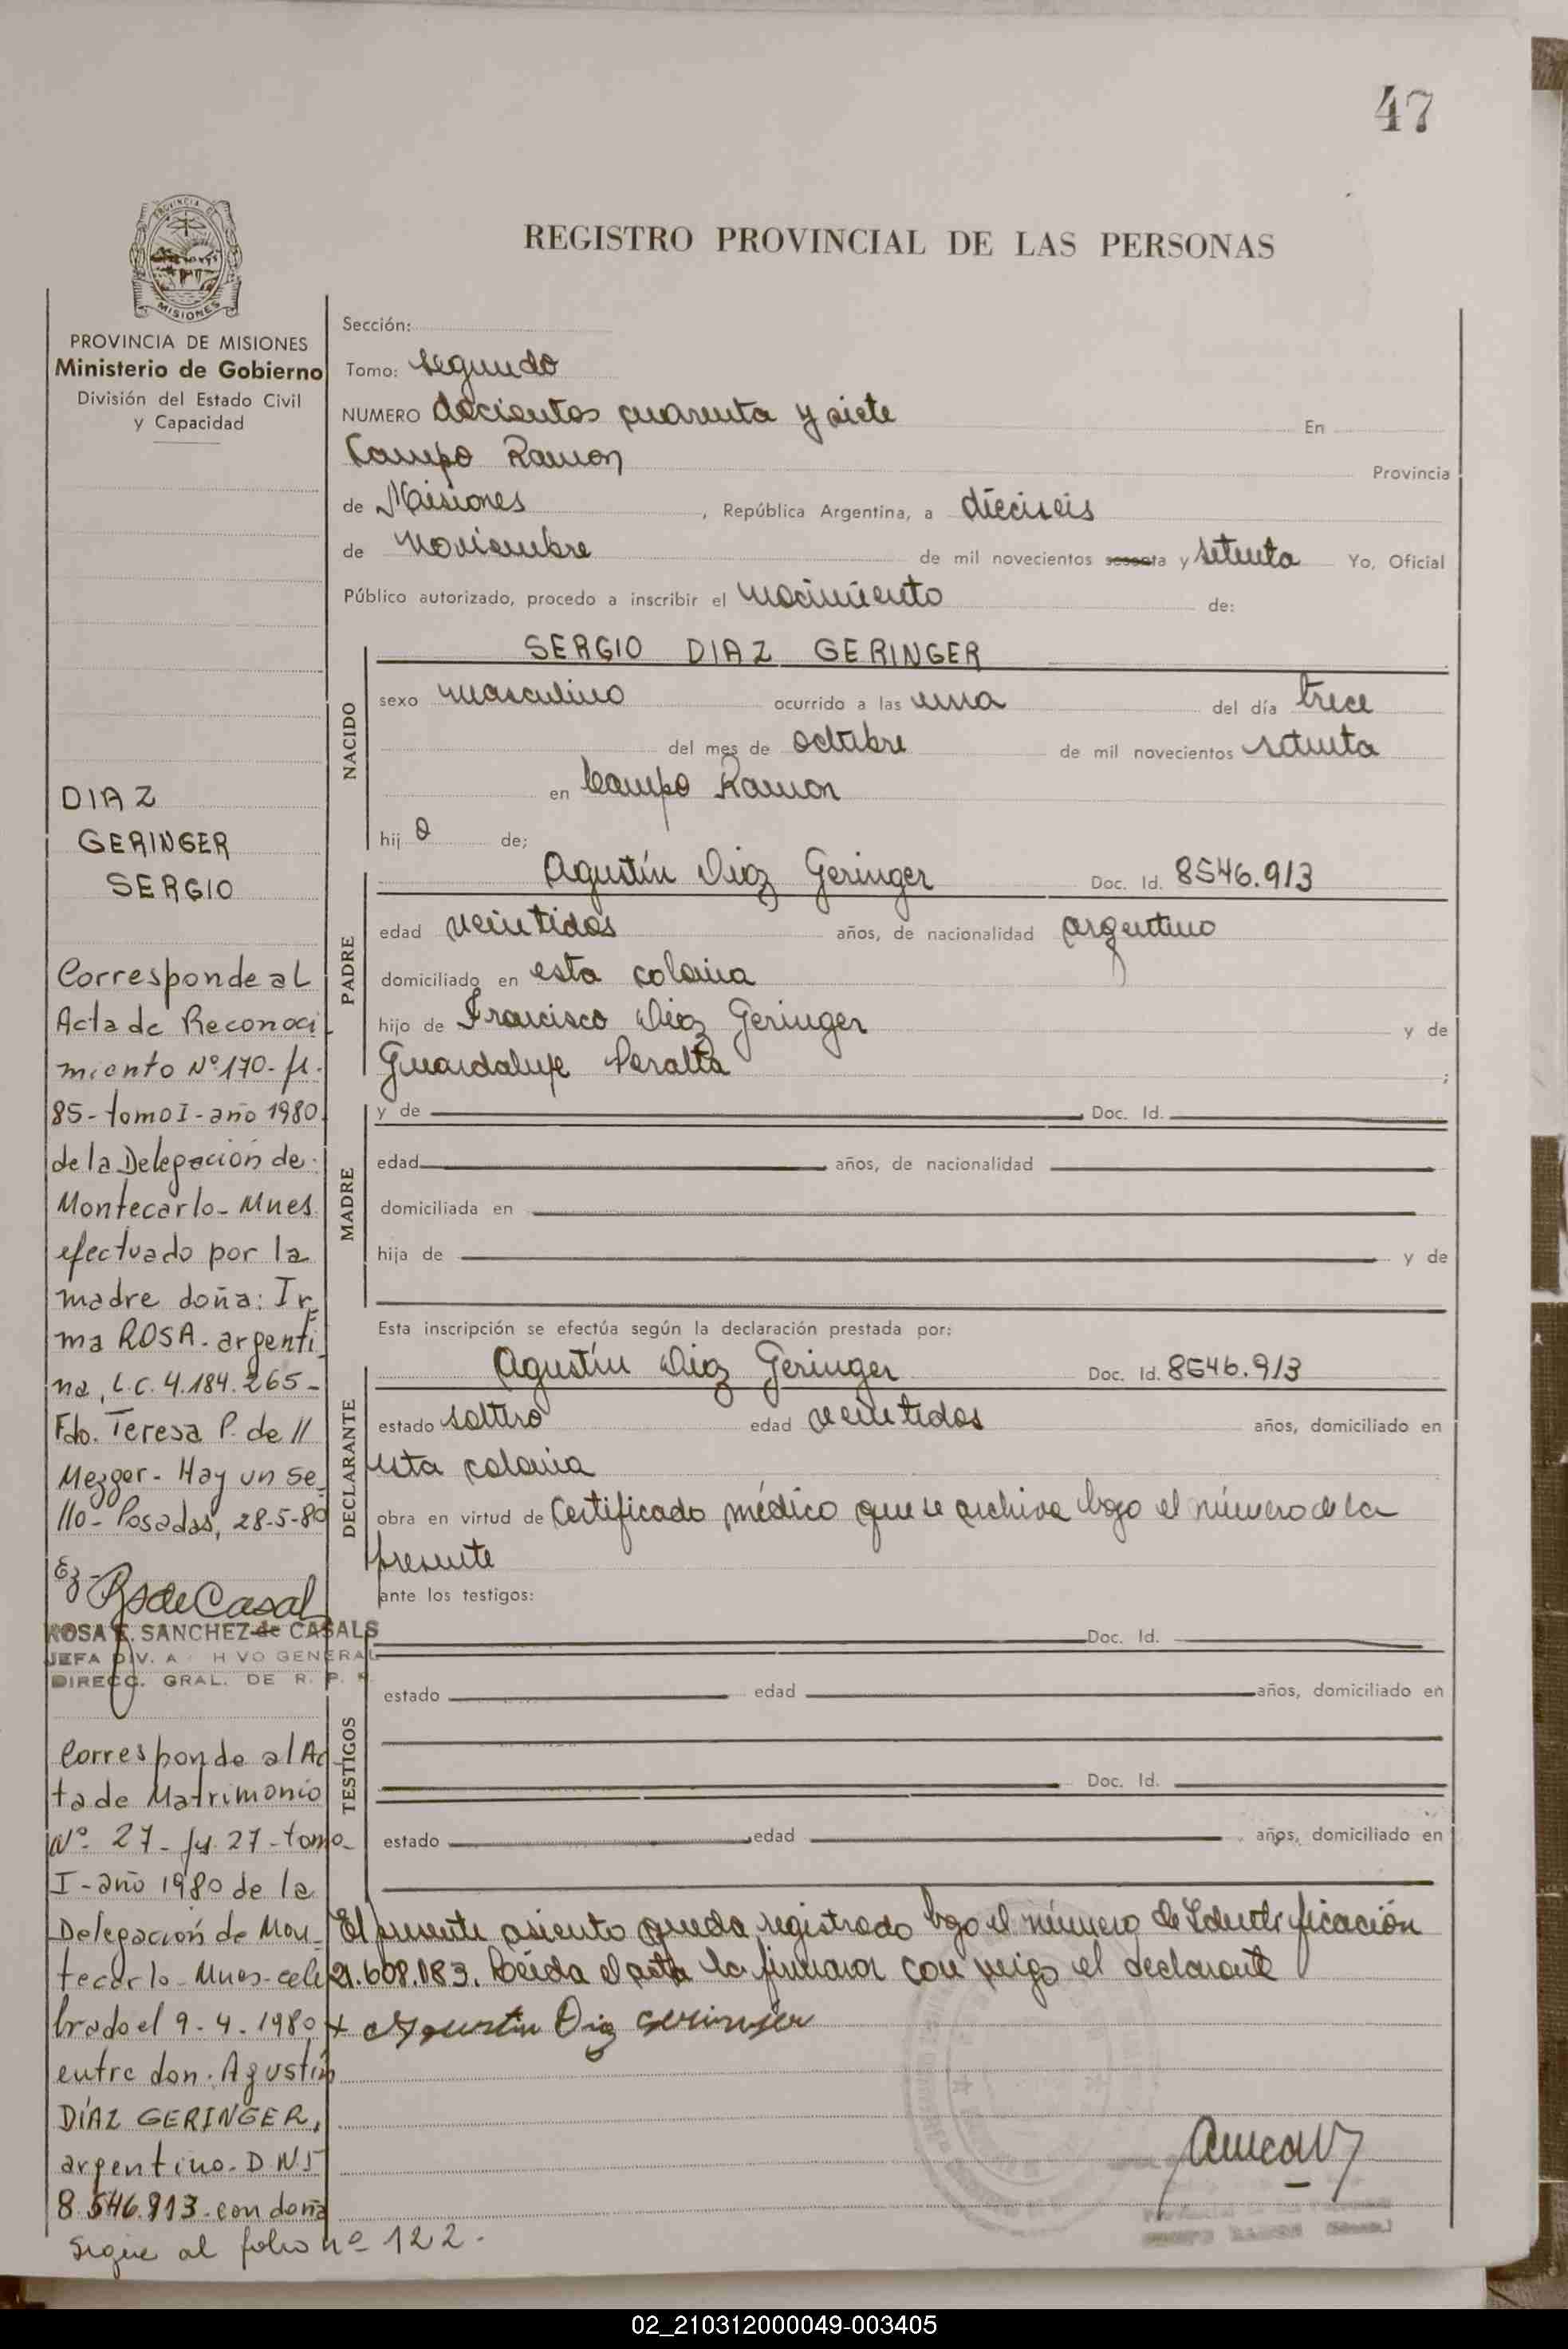 47
PROVINCIA DE
MISIONES
REGISTRO PROVINCIAL DE LAS PERSONAS
PROVINCIA DE MISIONES
Ministerio de Gobierno
División del Estado Civil
y Capacidad
Sección:
Tomo: segundo
NUMERO docientos cuarenta y siete En
Campo Ramon Provincia
de Misiones, República Argentina, a dieciseis
de noviembre de mil novecientos sesenta y setenta Yo, Oficial
Público autorizado, procedo a inscribir el nacimiento de:
NACIDO
SERGIO DIAZ GERINGER
sexo masculino ocurrido a las una del día trece
del mes de octubre de mil novecientos setenta
en Campo Ramon
hij o de;
PADRE
Agustín Diaz Geringer Doc. Id. 8546.913
edad veintidos años, de nacionalidad argentino
domiciliado en esta colonia
hijo de Francisco Diaz Geringer y de
Guardalupe Peralta ;
MADRE
y de Doc. Id.
edad años, de nacionalidad
domiciliada en
hija de y de
Esta inscripción se efectúa según la declaración prestada por:
DECLARANTE
Agustín Diaz Geringer Doc. Id. 8546.913
estado soltero edad veintidos años, domiciliado en
esta colonia
obra en virtud de Certificado médico que se archiva bajo el número de la
presente
ante los testigos:
TESTIGOS
Doc. Id.
estado edad años, domiciliado en
Doc. Id.
estado edad años, domiciliado en
El presente asiento queda registrado bajo el número de Identificación
21.608.183. Leída el acta la firmaron con migo el declarante
x Agustin Diaz Geringer
DIAZ
GERINGER
SERGIO
Corresponde al
Acta de Reconoci
miento Nº 170- fl.
85- tomo I- año 1980
de la Delegación de
Montecarlo- Mnes
efectuado por la
madre doña: Ir
ma ROSA- argenti
na, L.C. 4.184.265-
Fdo. Teresa P. de //
Mezger- Hay un se
llo- Posadas, 28-5-80
ROSA E. SANCHEZ de CASALS
JEFA DIV. A HVO GENERAL
DIRECC. GRAL. DE R. P.
Corresponde al Ac
ta de Matrimonio
Nº 27- fs. 27- tomo
I- año 1980 de la
Delegación de Mon
tecarlo- Mnes- cele
brado el 9-4-1980
entre don. Agustín
DÍAZ GERINGER,
argentino- D.N.I
8.546.913- con doña
Sigue al folio nº 122-
02_210312000049-003405